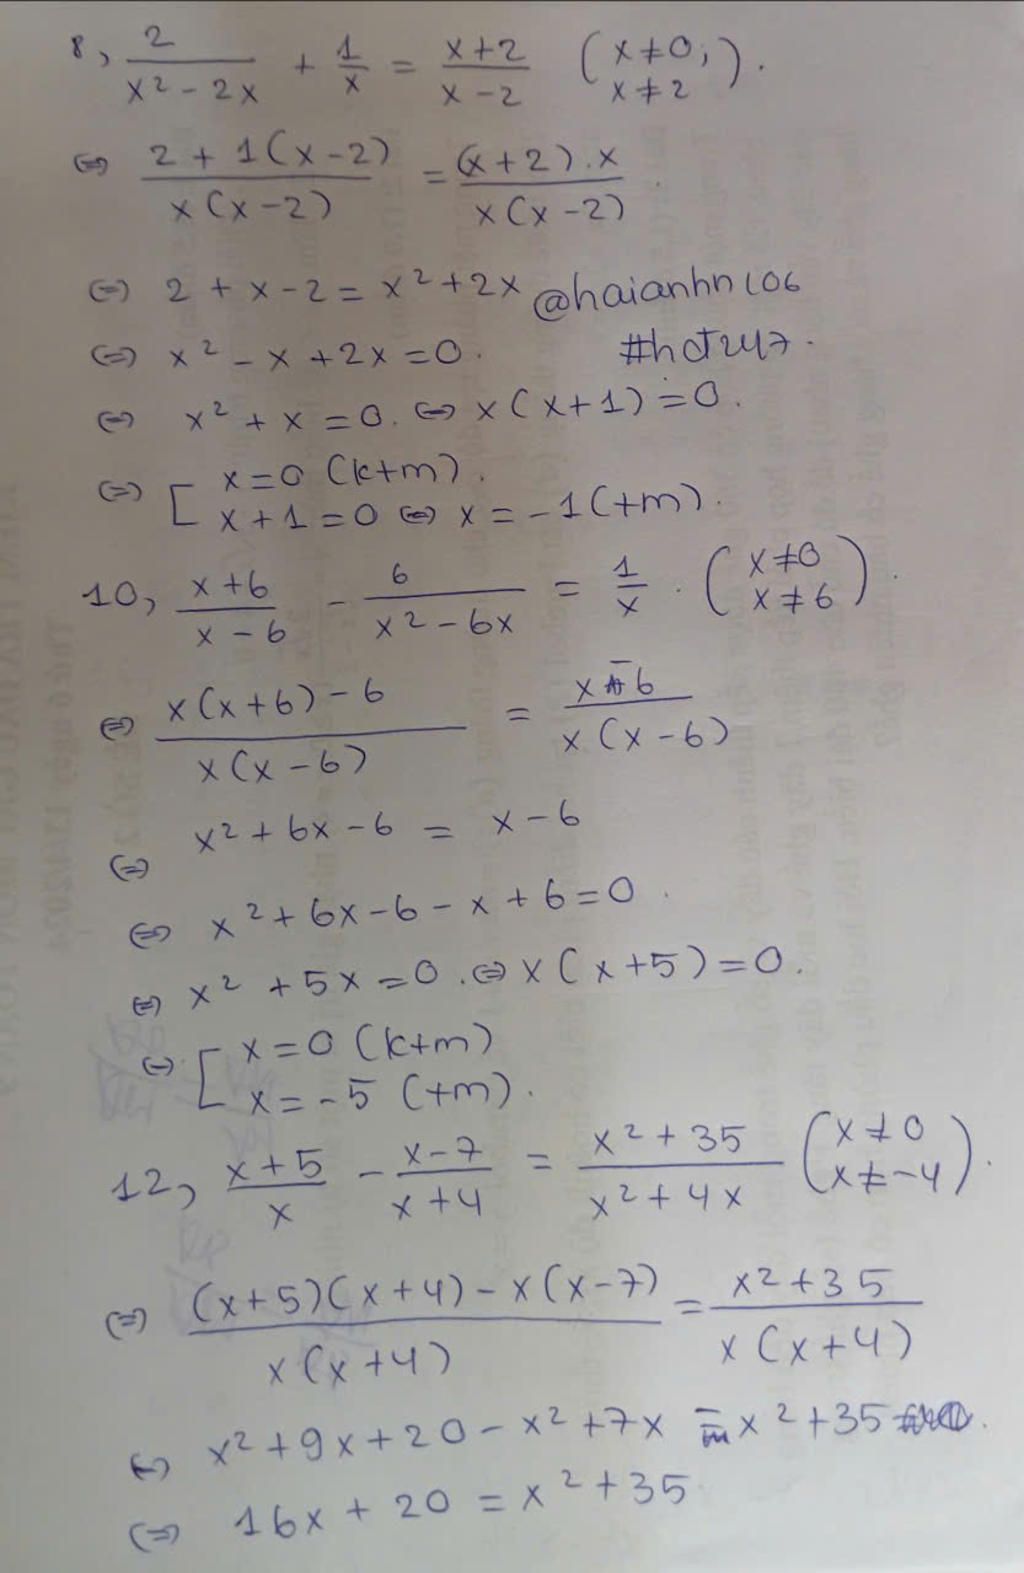 8, 2/(x² - 2x) + 1/x = (x+2)/(x-2) (x≠0; x≠2).
⇔ (2 + 1(x-2))/(x(x-2)) = ((x+2).x)/(x(x-2))
⇔ 2 + x - 2 = x² + 2x @haianhn106
⇔ x² - x + 2x = 0. #hot247.
⇔ x² + x = 0. ⇔ x(x+1) = 0.
⇔ [ x = 0 (ktm).
x + 1 = 0 ⇔ x = -1 (tm).
10, (x+6)/(x-6) - 6/(x² - 6x) = 1/x . (x≠0 x≠6).
⇔ (x(x+6) - 6)/(x(x-6)) = (x-6)/(x(x-6))
⇔ x² + 6x - 6 = x - 6
⇔ x² + 6x - 6 - x + 6 = 0.
⇔ x² + 5x = 0. ⇔ x(x+5) = 0.
⇔ [ x = 0 (ktm)
x = -5 (tm).
12, (x+5)/x - (x-7)/(x+4) = (x² + 35)/(x² + 4x) (x≠0 x≠-4).
⇔ ((x+5)(x+4) - x(x-7))/(x(x+4)) = (x² + 35)/(x(x+4))
⇔ x² + 9x + 20 - x² + 7x = x² + 35.
⇔ 16x + 20 = x² + 35.